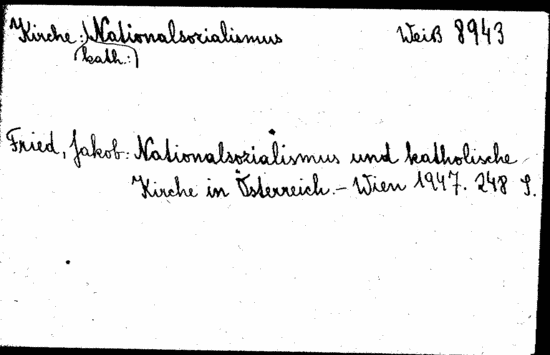 Kirche: Nationalsozialismus Weiß 8943
(kath.:)
Fried, Jakob: Nationalsozialismus und katholische
Kirche in Österreich. - Wien 1947. 248 S.